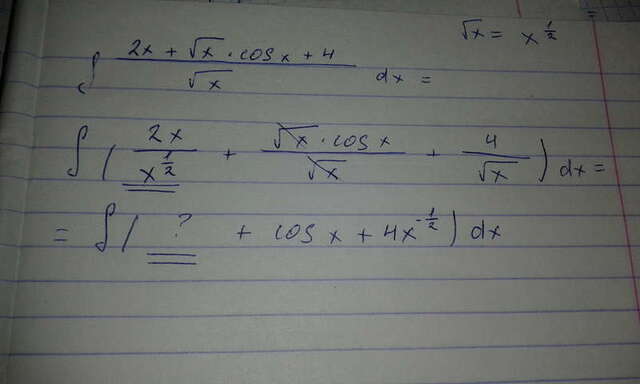 √x = x^(1/2)
∫ (2x + √x · cos x + 4)/√x dx =
∫ ( 2x/x^(1/2) + √x · cos x/√x + 4/√x ) dx =
= ∫ ( ? + cos x + 4x^(-1/2) ) dx